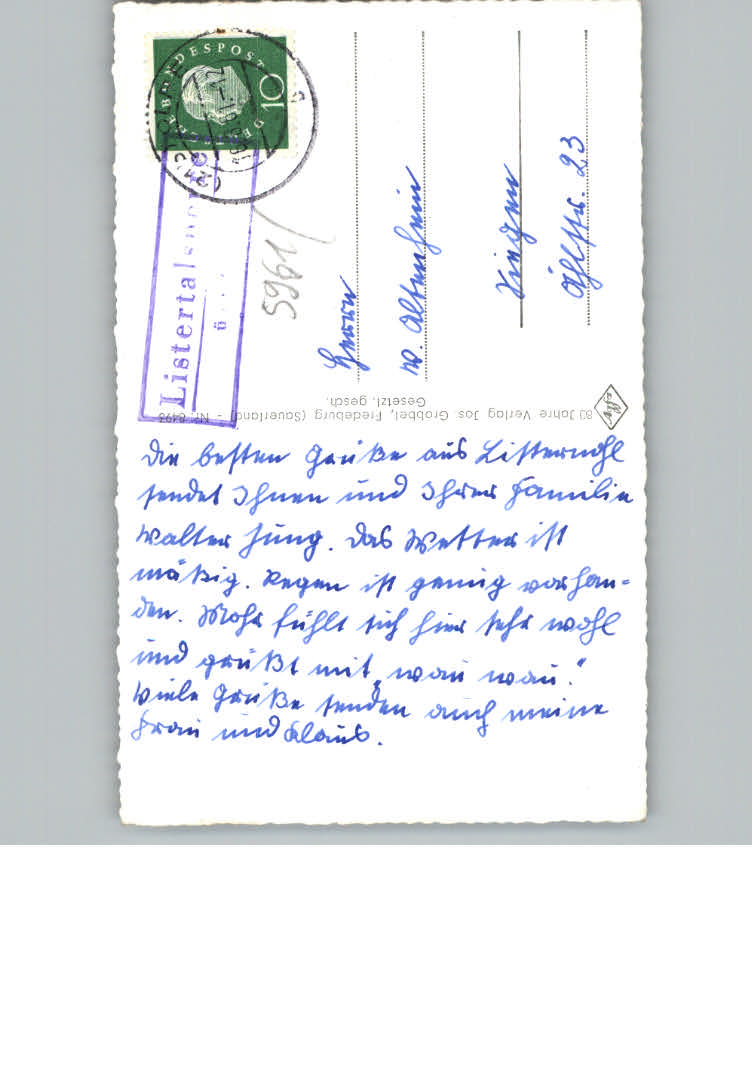 Die besten Grüße aus Listernohl
sendet Ihnen und Ihrer Familie
Walter Jung. Das Wetter ist
mäßig. Regen ist genug vorhan-
den. Mohr fühlt sich hier sehr wohl
und grüßt mit „wau wau."
Viele Grüße senden auch meine
Frau und Klaus.
Herrn
W. Altenhein
Siegen
Achstr. 23
5961
Listertalsperre
DEUTSCHE BUNDESPOST
10
80 Jahre Verlag Jos. Grobbel, Fredeburg (Sauerland) - Nr. 8493
Gesetzl. gesch.